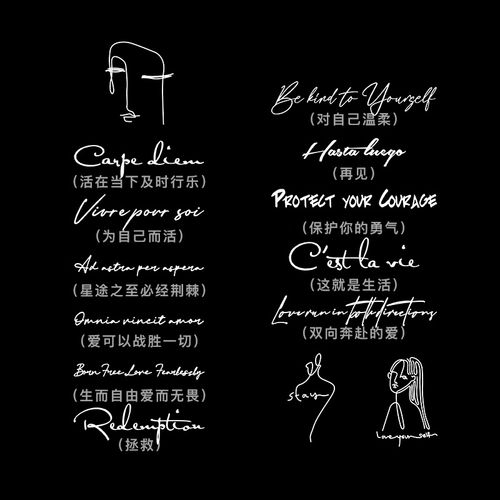 Carpe diem
(活在当下及时行乐)
Vivre pour soi
(为自己而活)
Ad astra per aspera
(星途之至必经荆棘)
Omnia vincit amor
(爱可以战胜一切)
Born Free Love Fearlessly
(生而自由爱而无畏)
Redemption
(拯救)
Be kind to Yourself
(对自己温柔)
Hasta luego
(再见)
PROTECT YOUR COURAGE
(保护你的勇气)
C'est la vie
(这就是生活)
Love run in both directions
(双向奔赴的爱)
stay
Love your self